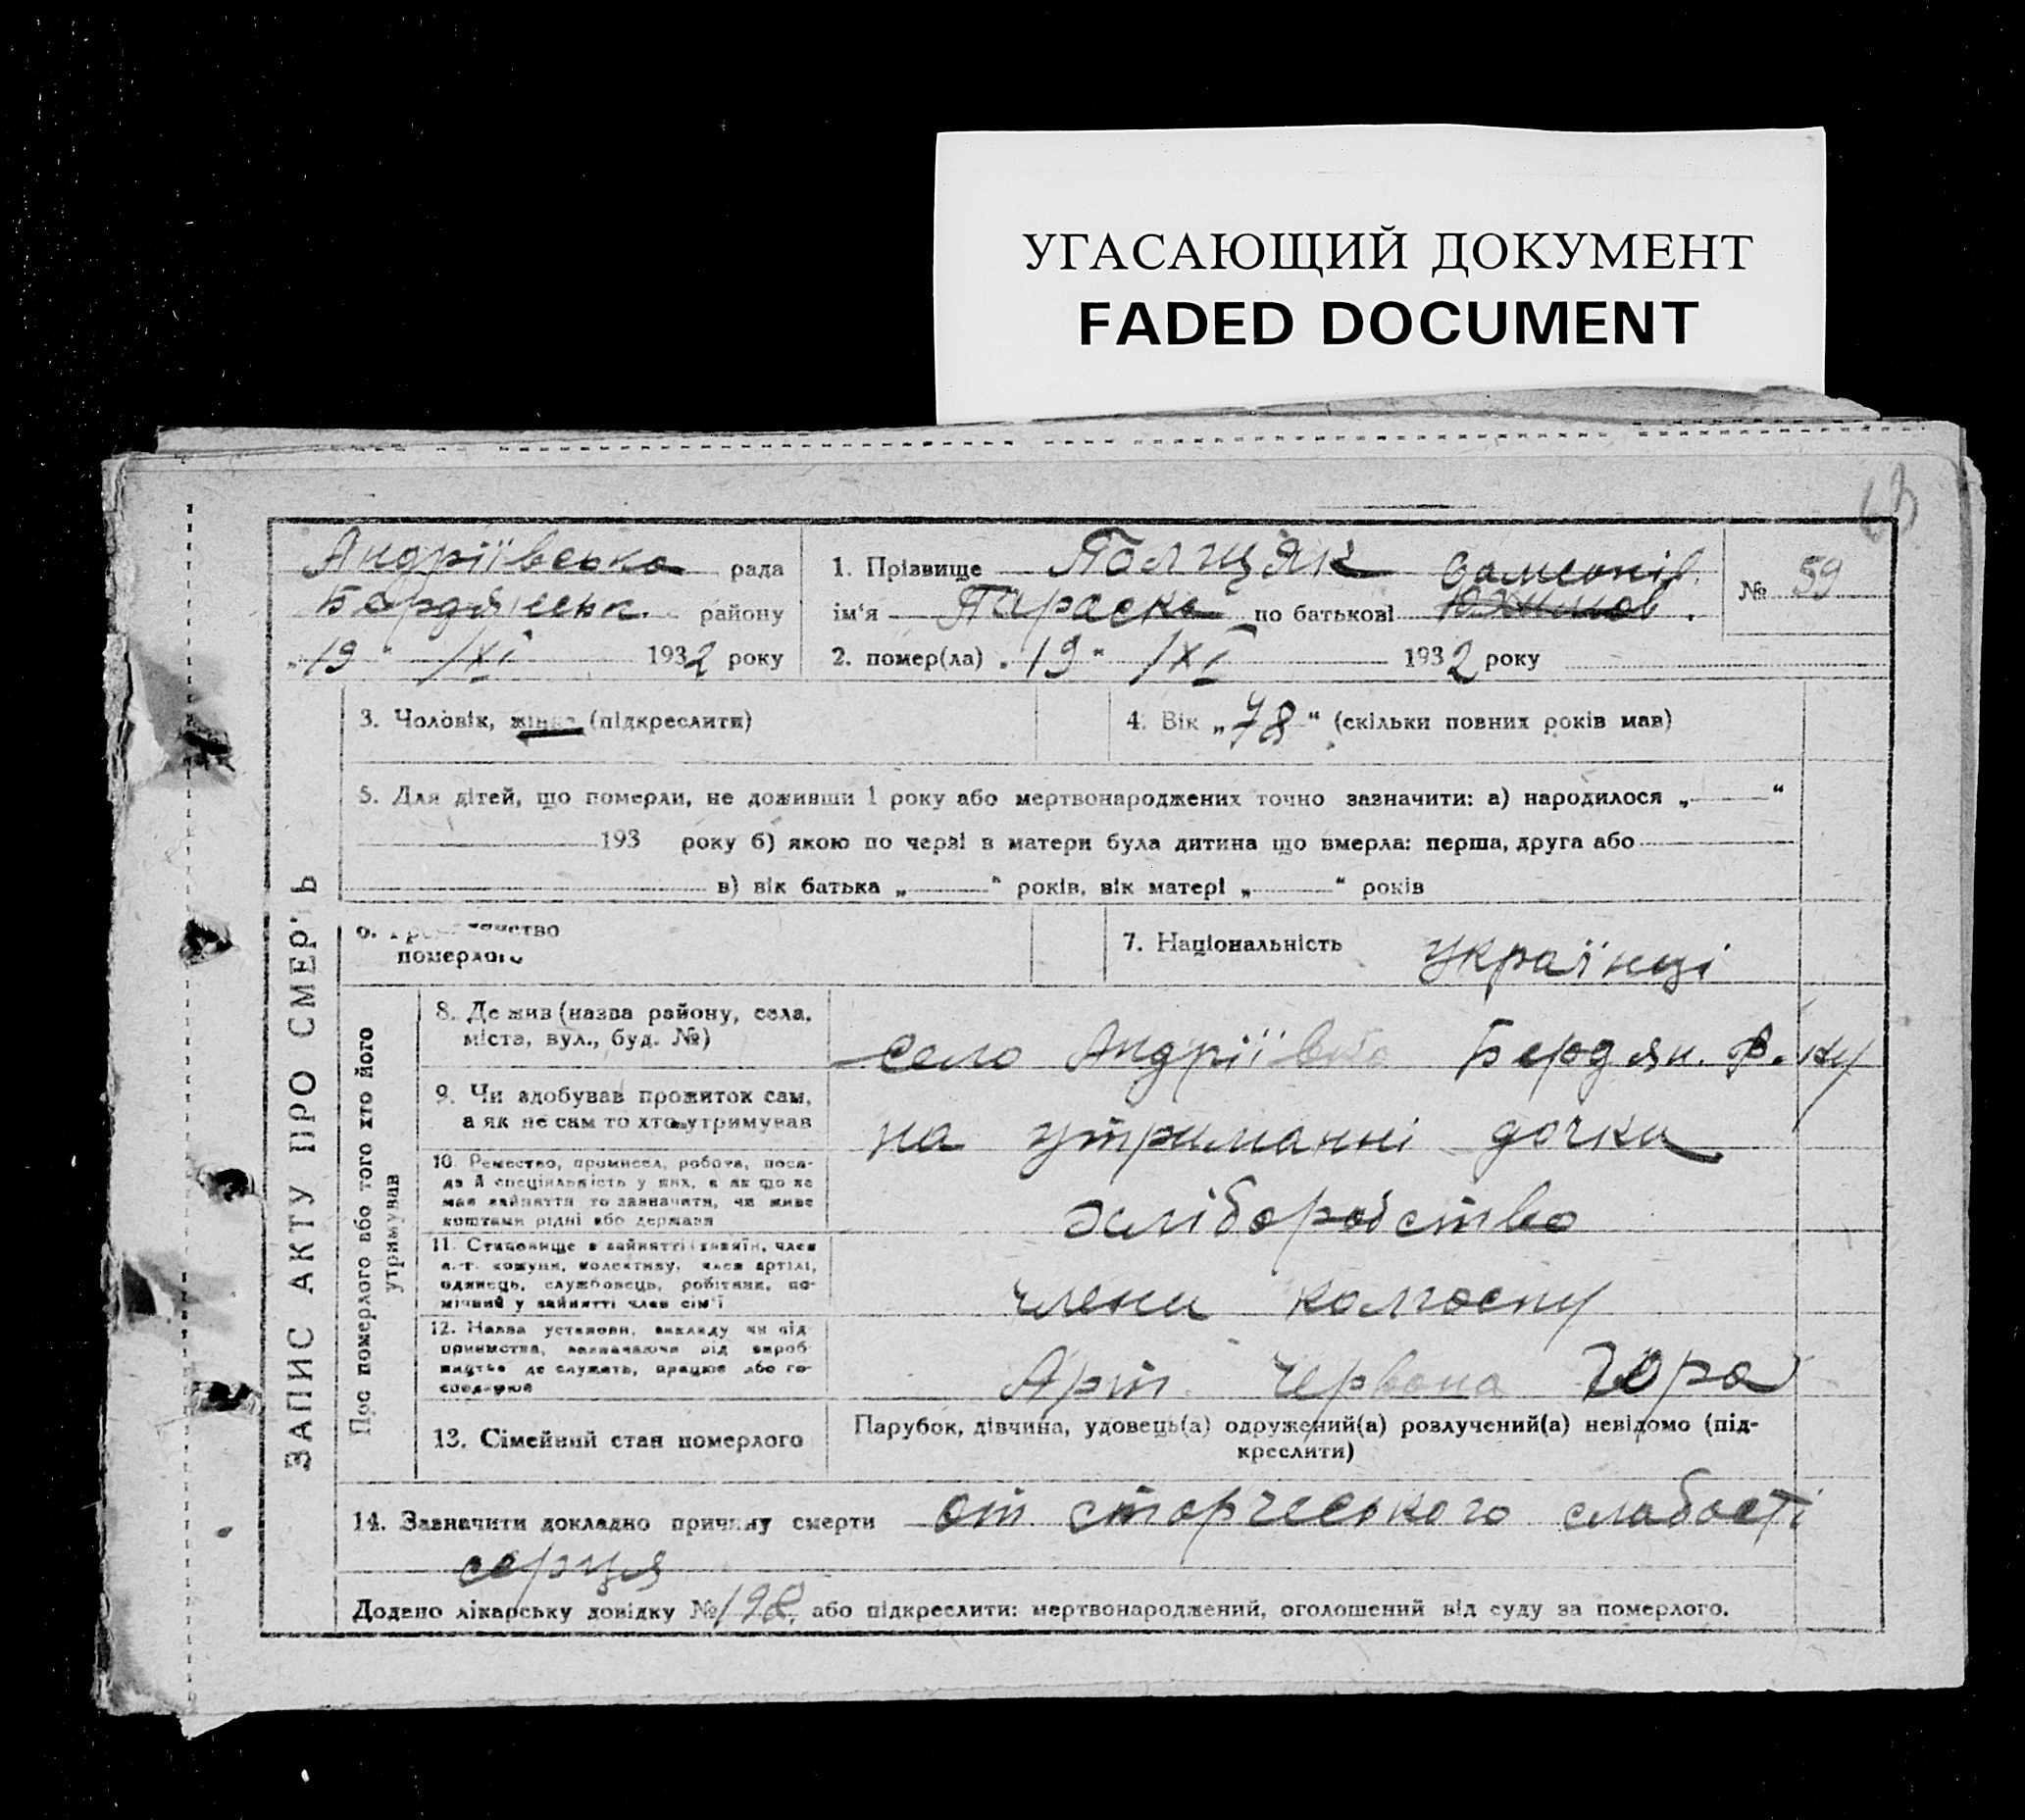 УГАСАЮЩИЙ ДОКУМЕНТ
FADED DOCUMENT
Андріївська рада
Бердянськ. району
„19“ /XI 1932 року
1. Прізвище
ім'я Параска по батькові Самсонів.
2. помер(ла) „19“ /XI 1932 року
№ 59
3. Чоловік, жінка (підкреслити)
4. Вік „78“ (скільки повних років мав)
5. Для дітей, що померли, не доживши 1 року або мертвонароджених точно зазначити: а) народилося „ “
193 року б) якою по черзі в матери була дитина що вмерла: перша, друга або
в) вік батька „ “ років, вік матері „ “ років
6. Громадянство
померлого
7. Національність українці
ЗАПИС АКТУ ПРО СМЕРТЬ
Про померлого або того хто його
утримував
8. Де жив (назва району, села,
міста, вул., буд. №)
село Андріївка Бердян. р.ну
9. Чи здобував прожиток сам,
а як не сам то хто утримував
на утриманні дочки
10. Ремество, промисел, робота, поса-
да й спеціяльність у них, а як що не
мав зайняття то зазначити, чи живе
коштами рідні або держави
хліборобство
11. Становище в зайнятті (хазяїн, член
с.-г. комуни, колективу, член артілі,
одинець, службовець, робітник, по-
мічний у зайнятті член сім'ї
члени колгоспу
12. Назва установи, закладу чи під-
приємства, зазначаючи рід вироб-
ництва де служить, працює або го-
сподарює
Арт. Червона Гора
13. Сімейний стан померлого
Парубок, дівчина, удовець(а) одружений(а) розлучений(а) невідомо (під-
креслити)
14. Зазначити докладно причину смерти от старчеського слабості
серця
Додано лікарську довідку № 198, або підкреслити: мертвонароджений, оголошений від суду за померлого.